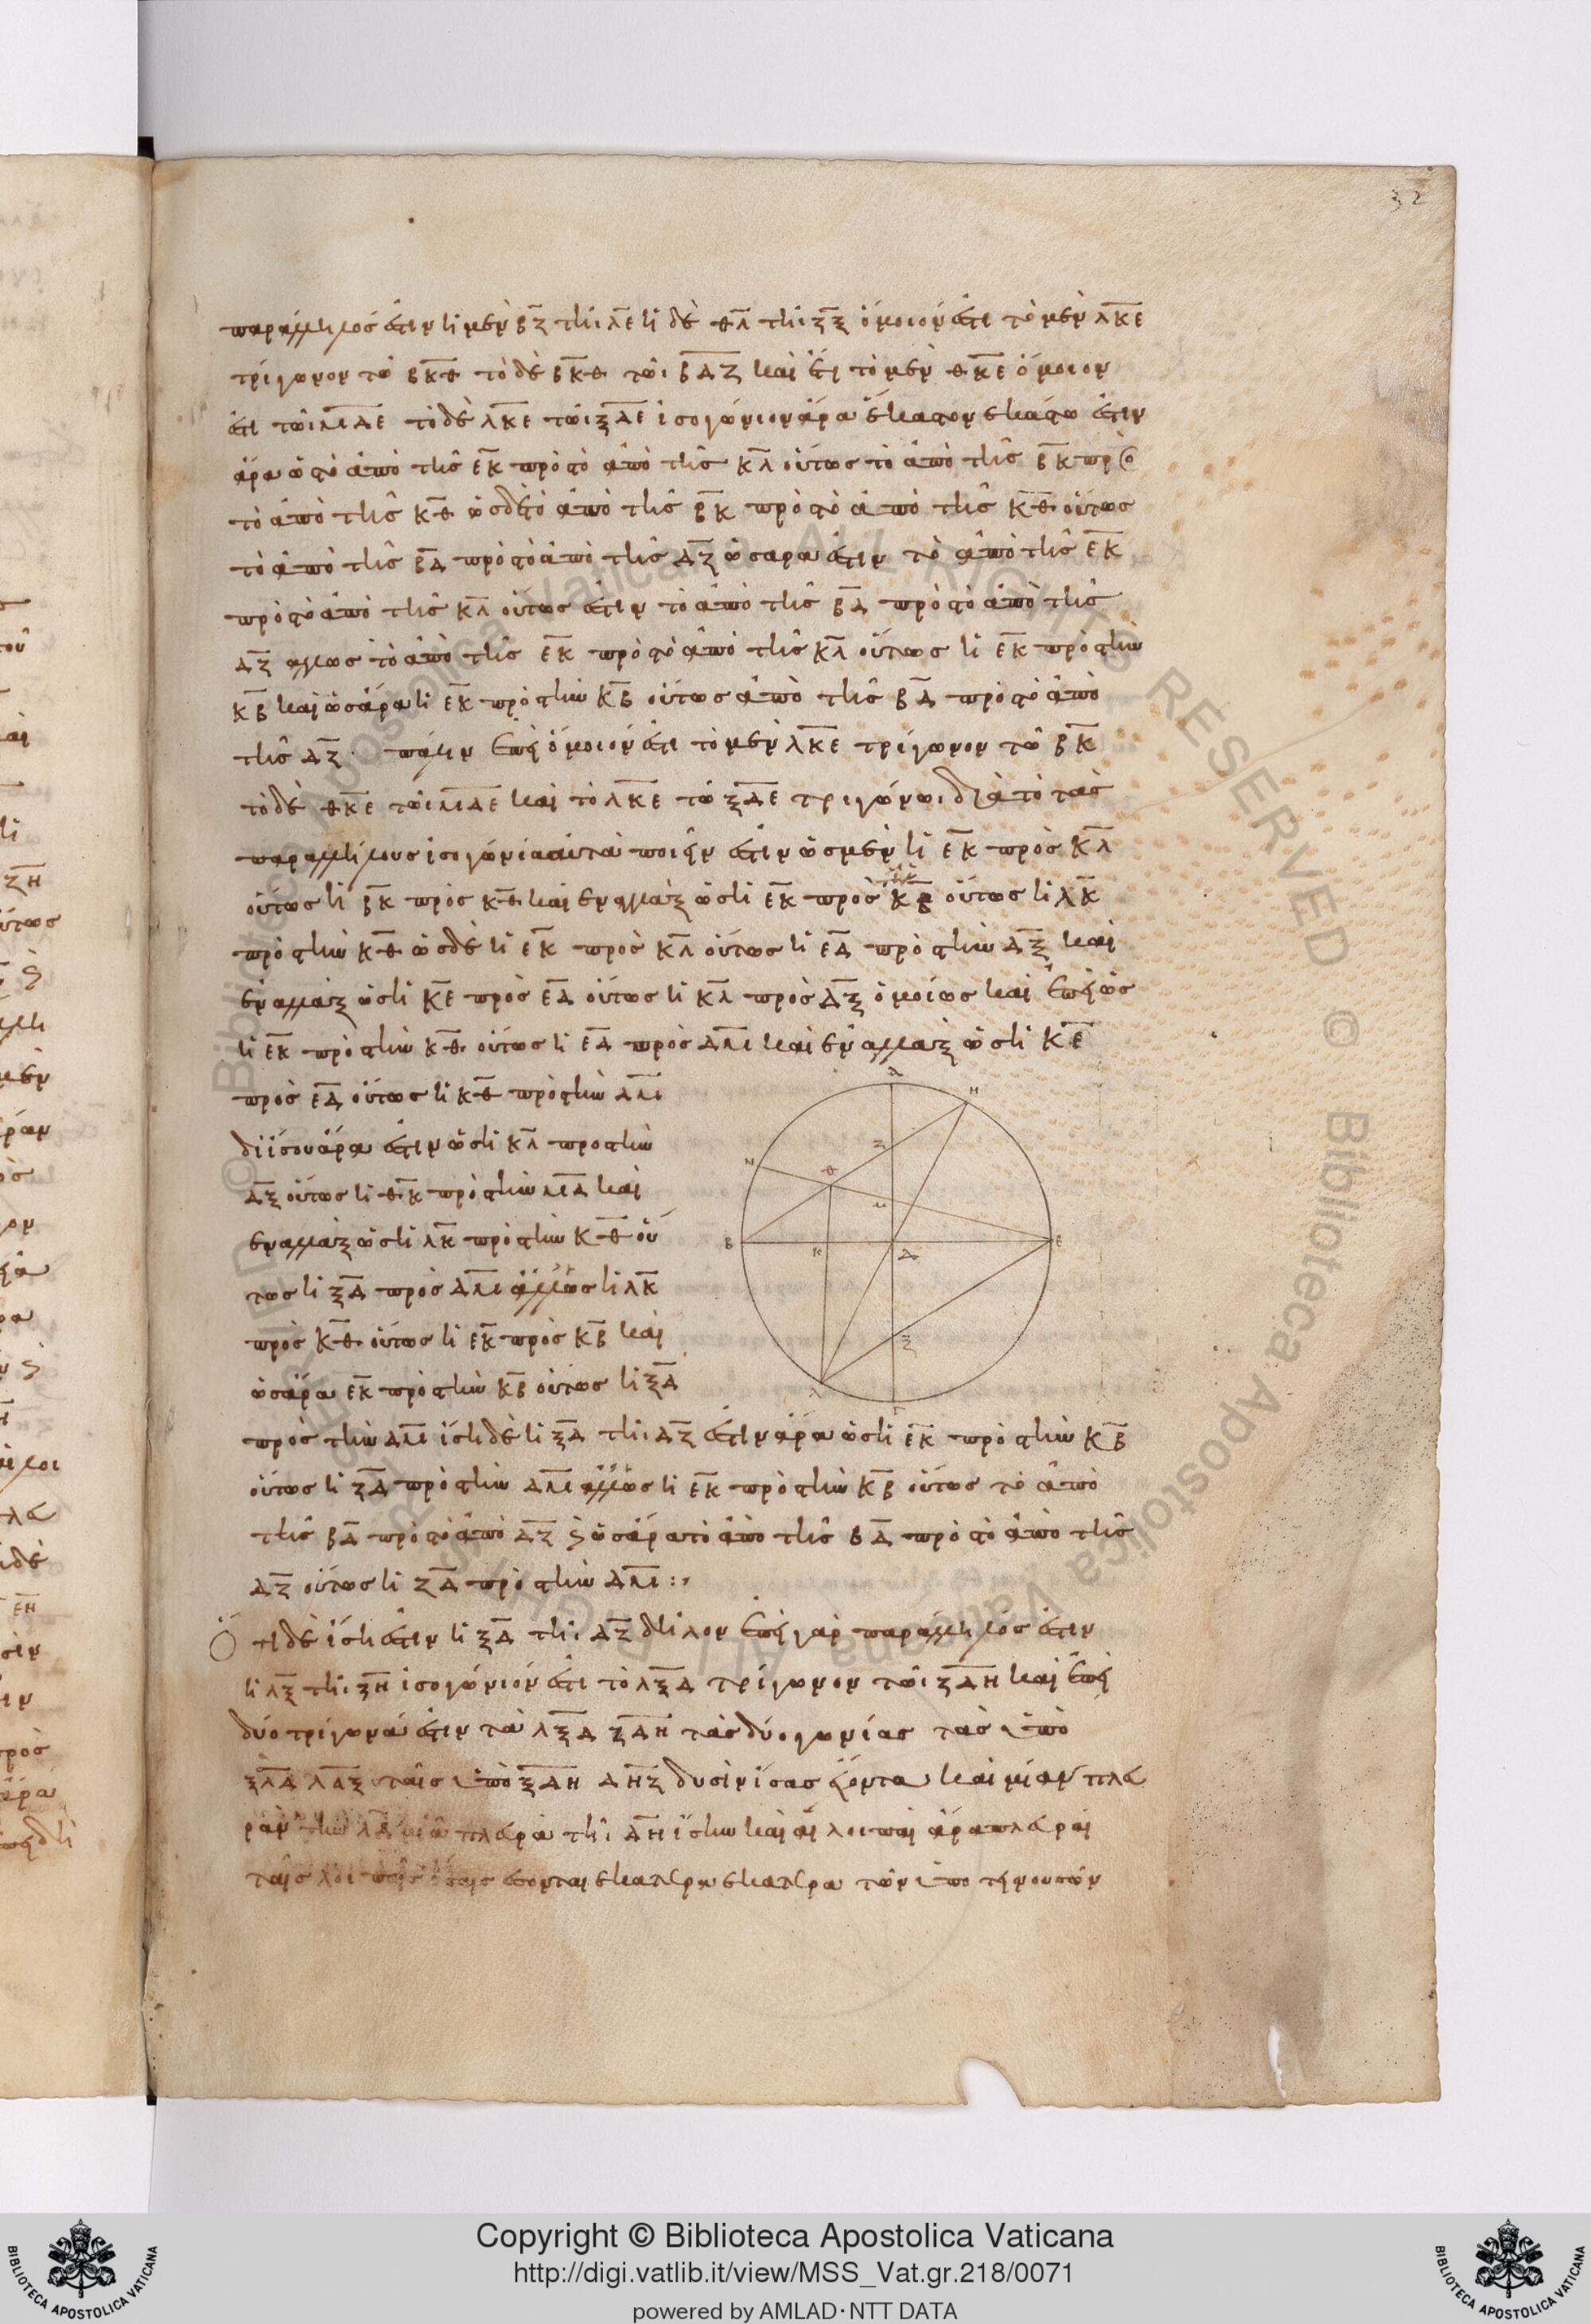 32
παράλληλός ἐστιν ἡ μὲν ΒΖ τῆι ΛΕ ἡ δὲ ΘΛ τῆι ΖΞ ὅμοιόν ἐστι τὸ μὲν ΛΚΕ
τρίγωνον τῶ ΒΚΘ τὸ δὲ ΒΚΘ τῶι ΒΔΖ καὶ ἔτι τὸ μὲν ΘΚΕ ὅμοιον
ἐστι τῶι ΜΔΕ τὸ δὲ ΛΚΕ τῶι ΞΔΕ ἰσογώνιον ἄρα ἕκαστον ἑκάστω ἐστιν
ἄρα ὡς τὸ ἀπὸ τῆς ΕΚ πρὸς τὸ ἀπὸ τῆς ΚΛ οὕτως τὸ ἀπὸ τῆς ΒΚ πρὸς
τὸ ἀπὸ τῆς ΚΘ ὡς δὲ τὸ ἀπὸ τῆς ΒΚ πρὸς τὸ ἀπὸ τῆς ΚΘ οὕτως
τὸ ἀπὸ τῆς ΒΔ πρὸς τὸ ἀπὸ τῆς ΔΖ ὡς ἄρα ἐστιν τὸ ἀπὸ τῆς ΕΚ
πρὸς τὸ ἀπὸ τῆς ΚΛ οὕτως ἐστιν τὸ ἀπὸ τῆς ΒΔ πρὸς τὸ ἀπὸ τῆς
ΔΖ αλλ ως τὸ ἀπὸ τῆς ΕΚ πρὸς τὸ ἀπὸ τῆς ΚΛ οὕτως ἡ ΕΚ πρὸς τὴν
ΚΒ καὶ ὡς ἄρα ἡ ΕΚ πρὸς τὴν ΚΒ οὕτως ἀπὸ τῆς ΒΔ πρὸς τὸ ἀπὸ
τῆς ΔΖ · πάλιν ἐπεὶ ὅμοιόν ἐστι τὸ μὲν ΛΚΕ τρίγωνον τῶ ΒΚ
τὸ δὲ ΘΚΕ τῶι ΜΔΕ καὶ τὸ ΛΚΕ τῶ ΞΔΕ τριγώνωι διὰ τὸ τὰς
παραλλήλους ἰσογώνια αὐτὰ ποιεῖν ἐστιν ὡς μὲν ἡ ΕΚ πρὸς ΚΛ
οὕτως ἡ ΒΚ πρὸς ΚΘ καὶ ἐναλλὰξ ὡς ἡ ΕΚ πρὸς ΚΒ οὕτως ἡ ΛΚ
πρὸς τὴν ΚΘ ὡς δὲ ἡ ΕΚ πρὸς ΚΛ οὕτως ἡ ΕΔ πρὸς τὴν ΔΞ καὶ
ἐναλλὰξ ὡς ἡ ΚΕ πρὸς ΕΔ οὕτως ἡ ΚΛ πρὸς ΔΞ ὁμοίως καὶ ἐπεὶ ὡς
ἡ ΕΚ πρὸς τὴν ΚΘ οὕτως ἡ ΕΔ πρὸς ΔΜ καὶ ἐναλλὰξ ὡς ἡ ΚΕ
πρὸς ΕΔ οὕτως ἡ ΚΘ πρὸς τὴν ΔΜ
δι ἴσου ἄρα ἐστιν ὡς ἡ ΚΛ προς τὴν
ΔΞ οὕτως ἡ ΘΚ πρὸς τὴν ΜΔ καὶ
ἐναλλὰξ ὡς ἡ ΛΚ πρὸς τὴν ΚΘ οὕ
τως ἡ ΞΔ πρὸς ΔΜ ἀλλ ὡς ἡ ΛΚ
πρὸς ΚΘ οὕτως ἡ ΕΚ πρὸς ΚΒ καὶ
ὡς ἄρα ΕΚ πρὸς τὴν ΚΒ οὕτως ἡ ΞΔ
πρὸς τὴν ΔΜ ἴση δὲ ἡ ΞΔ τῆι ΔΖ ἐστιν ἄρα ὡς ἡ ΕΚ πρὸς τὴν ΚΒ
οὕτως ἡ ΖΔ πρὸς τὴν ΔΜ ἀλλ ὡς ἡ ΕΚ πρὸς τὴν ΚΒ οὕτως τὸ ἀπὸ
τῆς ΒΔ πρὸς τὸ ἀπὸ ΔΖ καὶ ὡς ἄρα τὸ ἀπὸ τῆς ΒΔ πρὸς τὸ ἀπὸ τῆς
ΔΖ οὕτως ἡ ΖΔ πρὸς τὴν ΔΜ :,
Ὅτι δὲ ἴση ἐστιν ἡ ΞΔ τῆι ΔΖ δῆλον ἐπεὶ γὰρ παράλληλός ἐστιν
ἡ ΛΞ τῆι ΖΗ ἰσογώνιόν ἐστι τὸ ΛΞΔ τρίγωνον τῶι ΖΔΗ καὶ ἐπεὶ
δύο τρίγωνά ἐστιν τὰ ΛΞΔ ΖΔΗ τὰς δύο γωνίας τὰς ὑπὸ
ΞΛΔ ΛΔΞ ταῖς ὑπὸ ΞΔΗ ΔΗΖ δυσὶν ἴσας ἔχοντα καὶ μίαν πλευ
ρὰν τὴν ΛΔ μιᾶ πλευρᾶ τῆι ΔΗ ἴσην καὶ αἱ λοιπαὶ ἄρα πλευραὶ
ταῖς λοιπαῖς ἴσαις ἔσονται ἑκατέρα ἑκατέρα τῶν ὑποτεινουσῶν
Α
Η
Ζ
Ν
Θ
Μ
Β
Κ
Δ
Ε
Ξ
Λ
Γ
© Biblioteca Apostolica Vaticana ALL RIGHTS RESERVED © Biblioteca Apostolica Vaticana ALL RIGHTS RESERVED
Copyright © Biblioteca Apostolica Vaticana
http://digi.vatlib.it/view/MSS_Vat.gr.218/0071
powered by AMLAD·NTT DATA
BIBLIOTECA APOSTOLICA VATICANA
BIBLIOTECA APOSTOLICA VATICANA